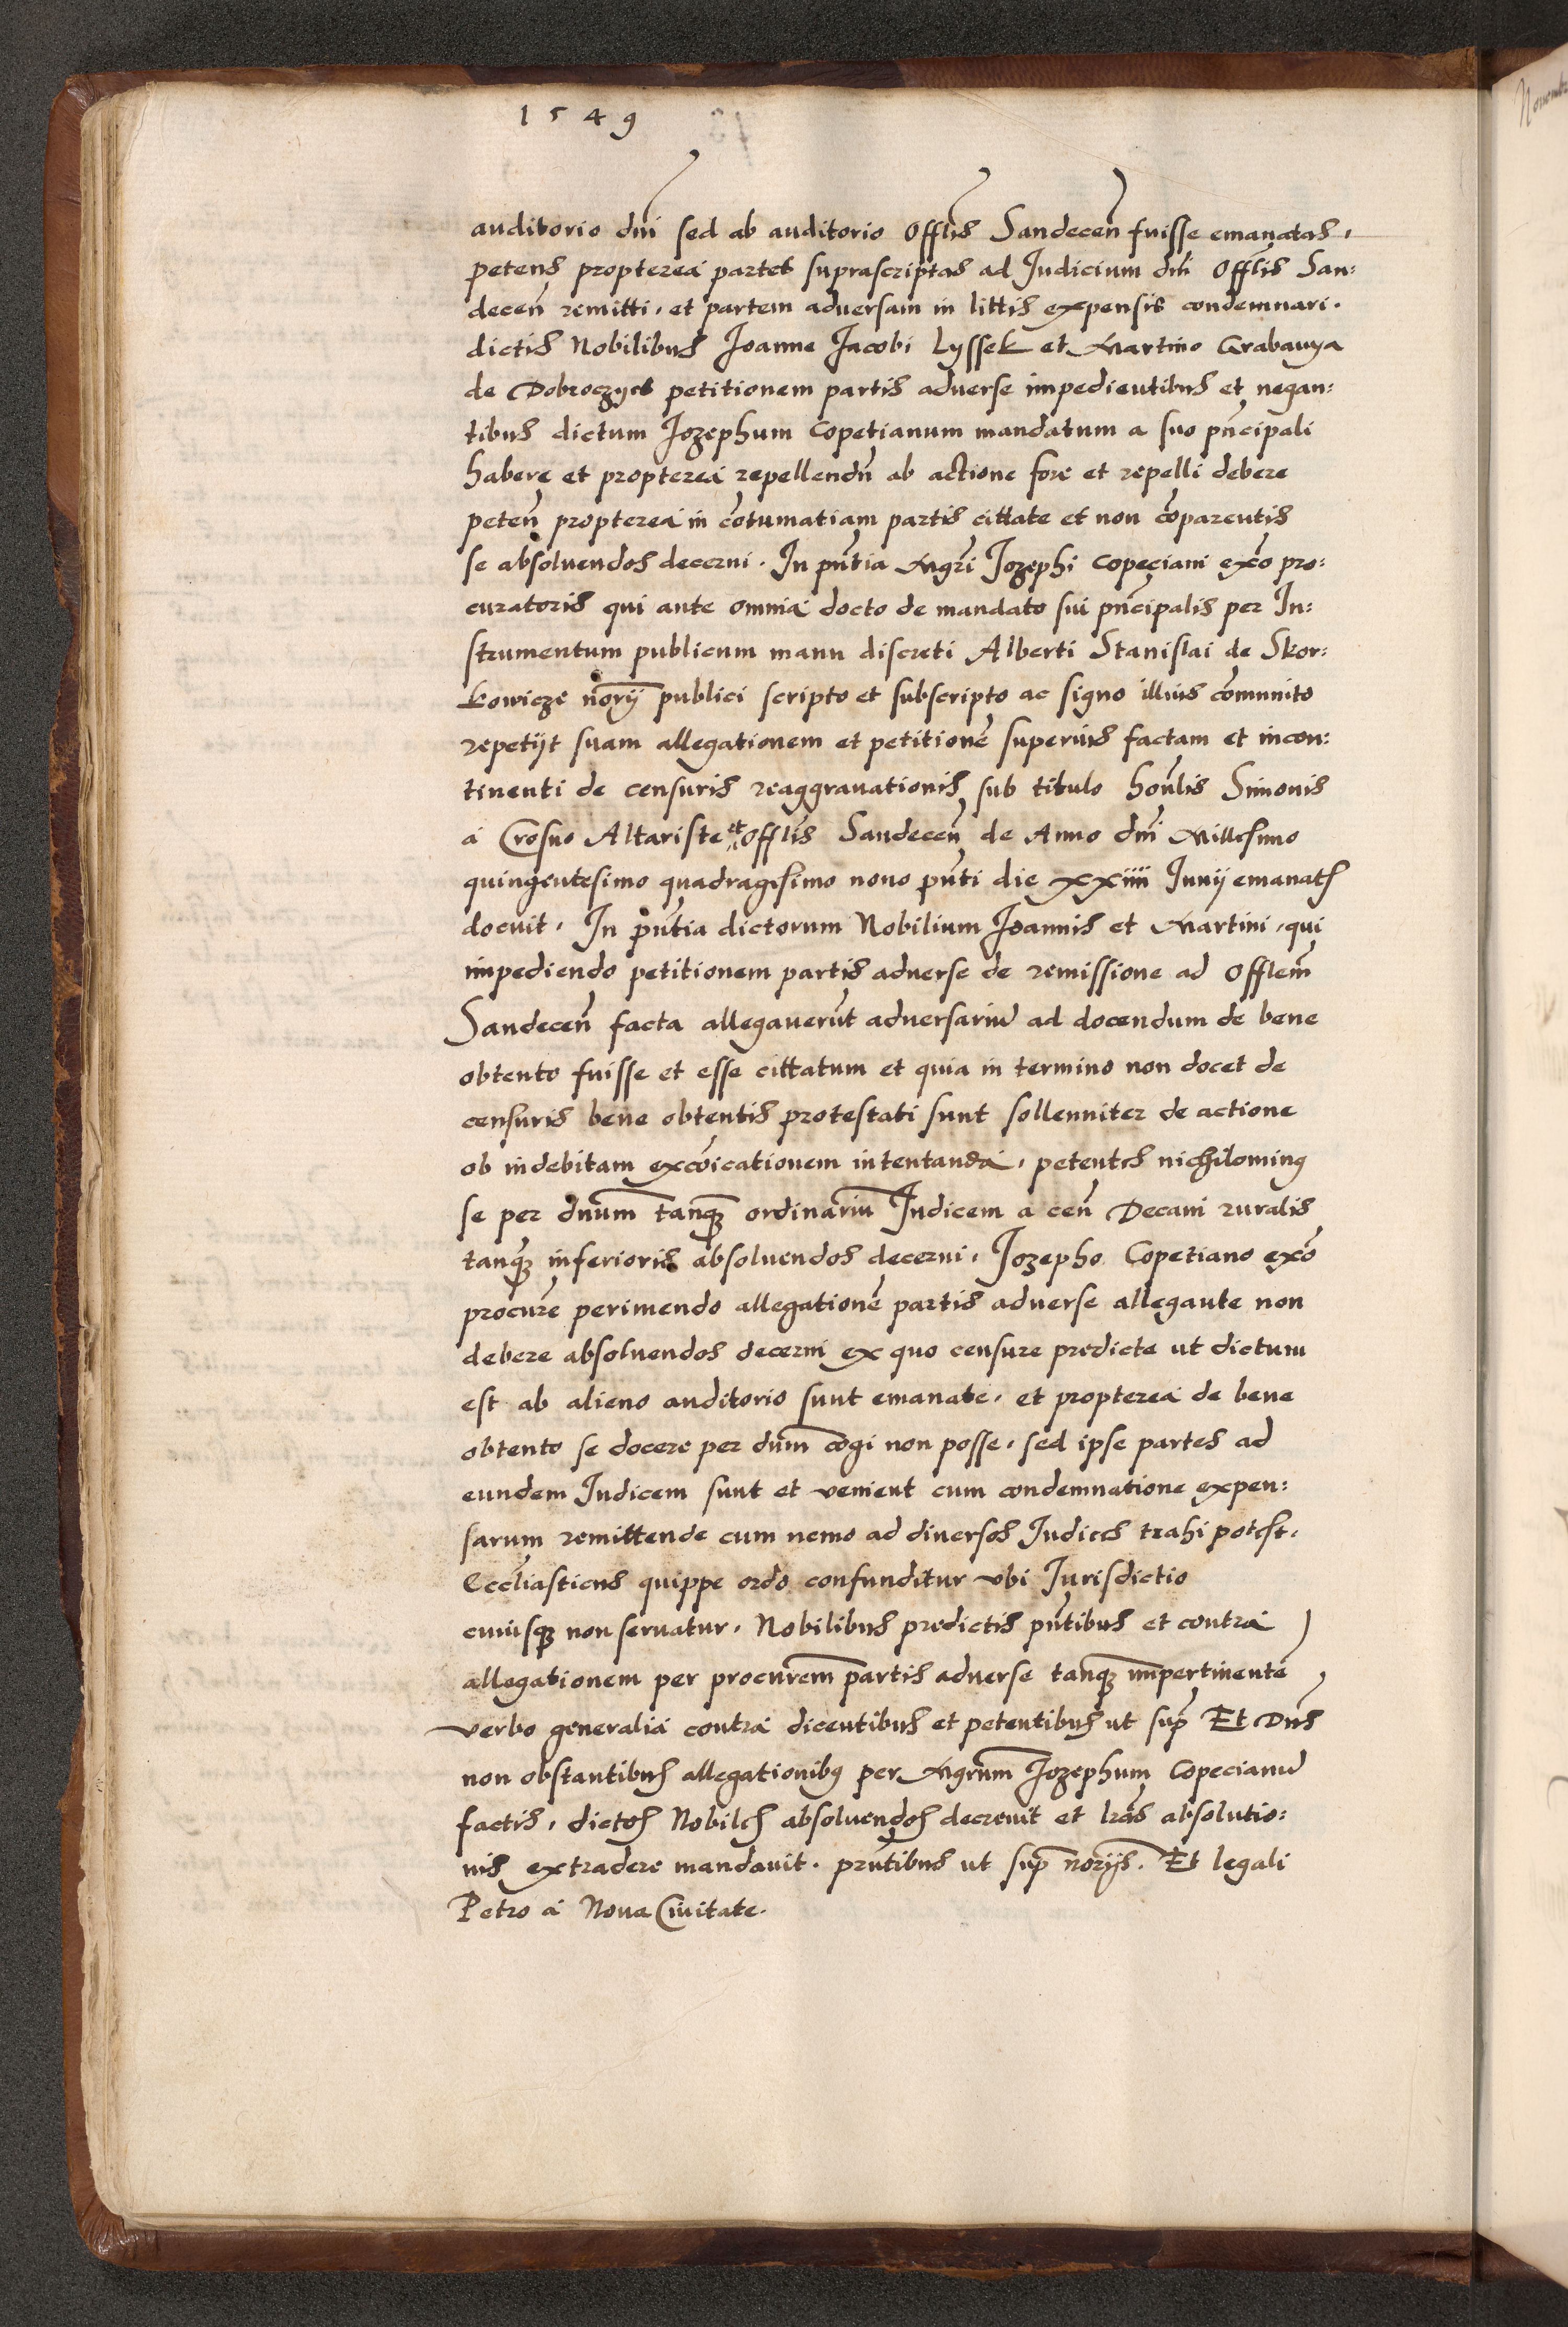 1549
auditorio dn̄i sed ab auditorio Offl̄is Sandecen̄ fuisse emanatas,
petens propterea partes suprascriptas ad Judicium dn̄i Offl̄is San:
decen̄ remitti, et partem adversam in littis expensis condemnari.
dictis Nobilibus Joanne Jacobi Lyssek et Martino Grabanya
de Dobroczyes petitionem partis adverse impedientibus et negan:
tibus dictum Jozephum Copetianum mandatum a suo pn̄cipali
habere et propterea repellendn̄ ab actione fore et repelli debere
peten̄ propterea in cōtumatiam partis cittate et non cōparentis
se absoluendos decerni. In pn̄tia Mgr̄i Jozephi Copeciani exc̄o pro:
curatoris qui ante omnia docto de mandato sui pn̄cipalis per In:
strumentum publicum manu discreti Alberti Stanislai de Skor:
kowicze no͞rij publici scripto et subscripto ac signo illius cōmunito
repetijt suam allegationem et petitionē superius factam et incon:
tinenti de censuris reaggravationis sub titulo hon̄lis Simonis
a Crosno Altariste et Offl̄is Sandecen̄ de Anno dn̄i Millesimo
quingentesimo quadragesimo nono pn̄ti die xxiiii Junij emanatis
docuit. In pn̄tia dictorum Nobilium Joannis et Martini, qui
impediendo petitionem partis adverse de remissione ad Offl̄em
Sandecen̄ facta allegaverūt adversariū ad docendum de bene
obtento fuisse et esse cittatum et quia in termino non docet de
censuris bene obtentis protestati sunt sollenniter de actione
ob indebitam excōicationem intentanda, petentes nichilominꝰ
se per dn̄um tanꝗ̄ ordinariū Judicem a cen̄ Decani ruralis
tanꝗ̄ inferioris absoluendos decerni, Jozepho Copetiano exc̄o
procurē perimendo allegationē partis adverse allegante non
debere absoluendos decerni ex quo censure predicte ut dictum
est ab alieno auditorio sunt emanate, et propterea de bene
obtento se docere per dn̄um cōgi non posse, sed ipse partes ad
eundem Judicem sunt et venient cum condemnatione expen:
sarum remittende cum nemo ad diversos Judices trahi potest.
Eccl̄iasticus quippe ordo confunditur ubi Jurisdictio
cuiusꝗ non servatur. Nobilibus predictis pn̄tibus et contra
allegationem per procurēm partis adverse tanꝗ̄ impertinentē
verbo generalia contra dicentibus et petentibus ut sup̄ Et Dn̄s
non obstantibus allegationibꝰ per Mgr̄um Jozephum Copecianū
factis, dictos Nobiles absoluendos decrevit et lr̄as absolutio:
nis extradere mandavit. pn̄tibus ut sup̄ no͞rijs. Et legali
Petro a Nova Civitate.